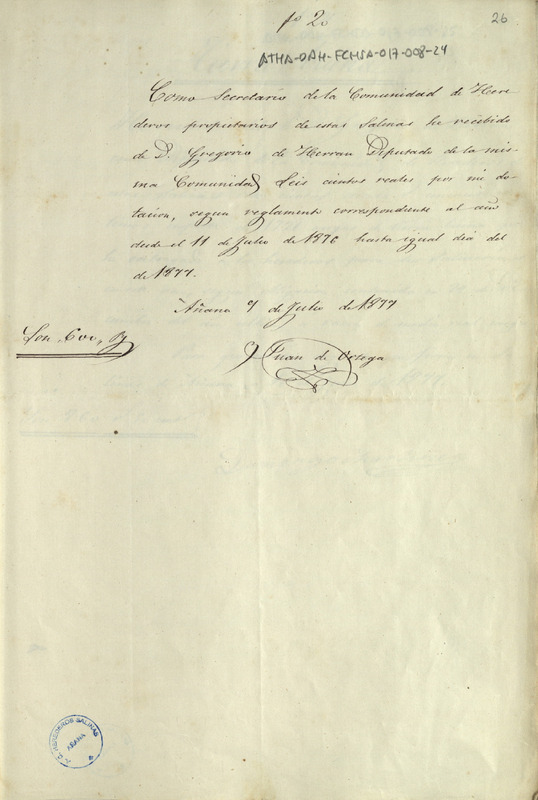 fo 2o
26
ATHA-DAH-FCHSA-017-008-24
Como Secretario de la Comunidad de Here
deros propietarios de estas Salinas he recibido
de D. Gregorio de Herran Diputado de la mis
ma Comunidad Seis cientos reales por mi do-
tacion, segun reglamento correspondiente al año
desde el 11 de Julio de 1876 hasta igual dia del
de 1877.
Añana 9 de Julio de 1877
Son 600, R
Juan de Ortega
HEREDEROS SALINAS
AÑANA